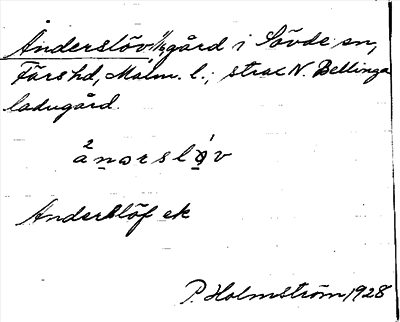 Anderslöv 1/2 gård i Sövde sn,
Färs hd, Malm. l.; strax N. Bellinga
ladugård.
2 1
å n ə r s l ø v
Anderslöf ek
P. Holmström 1928